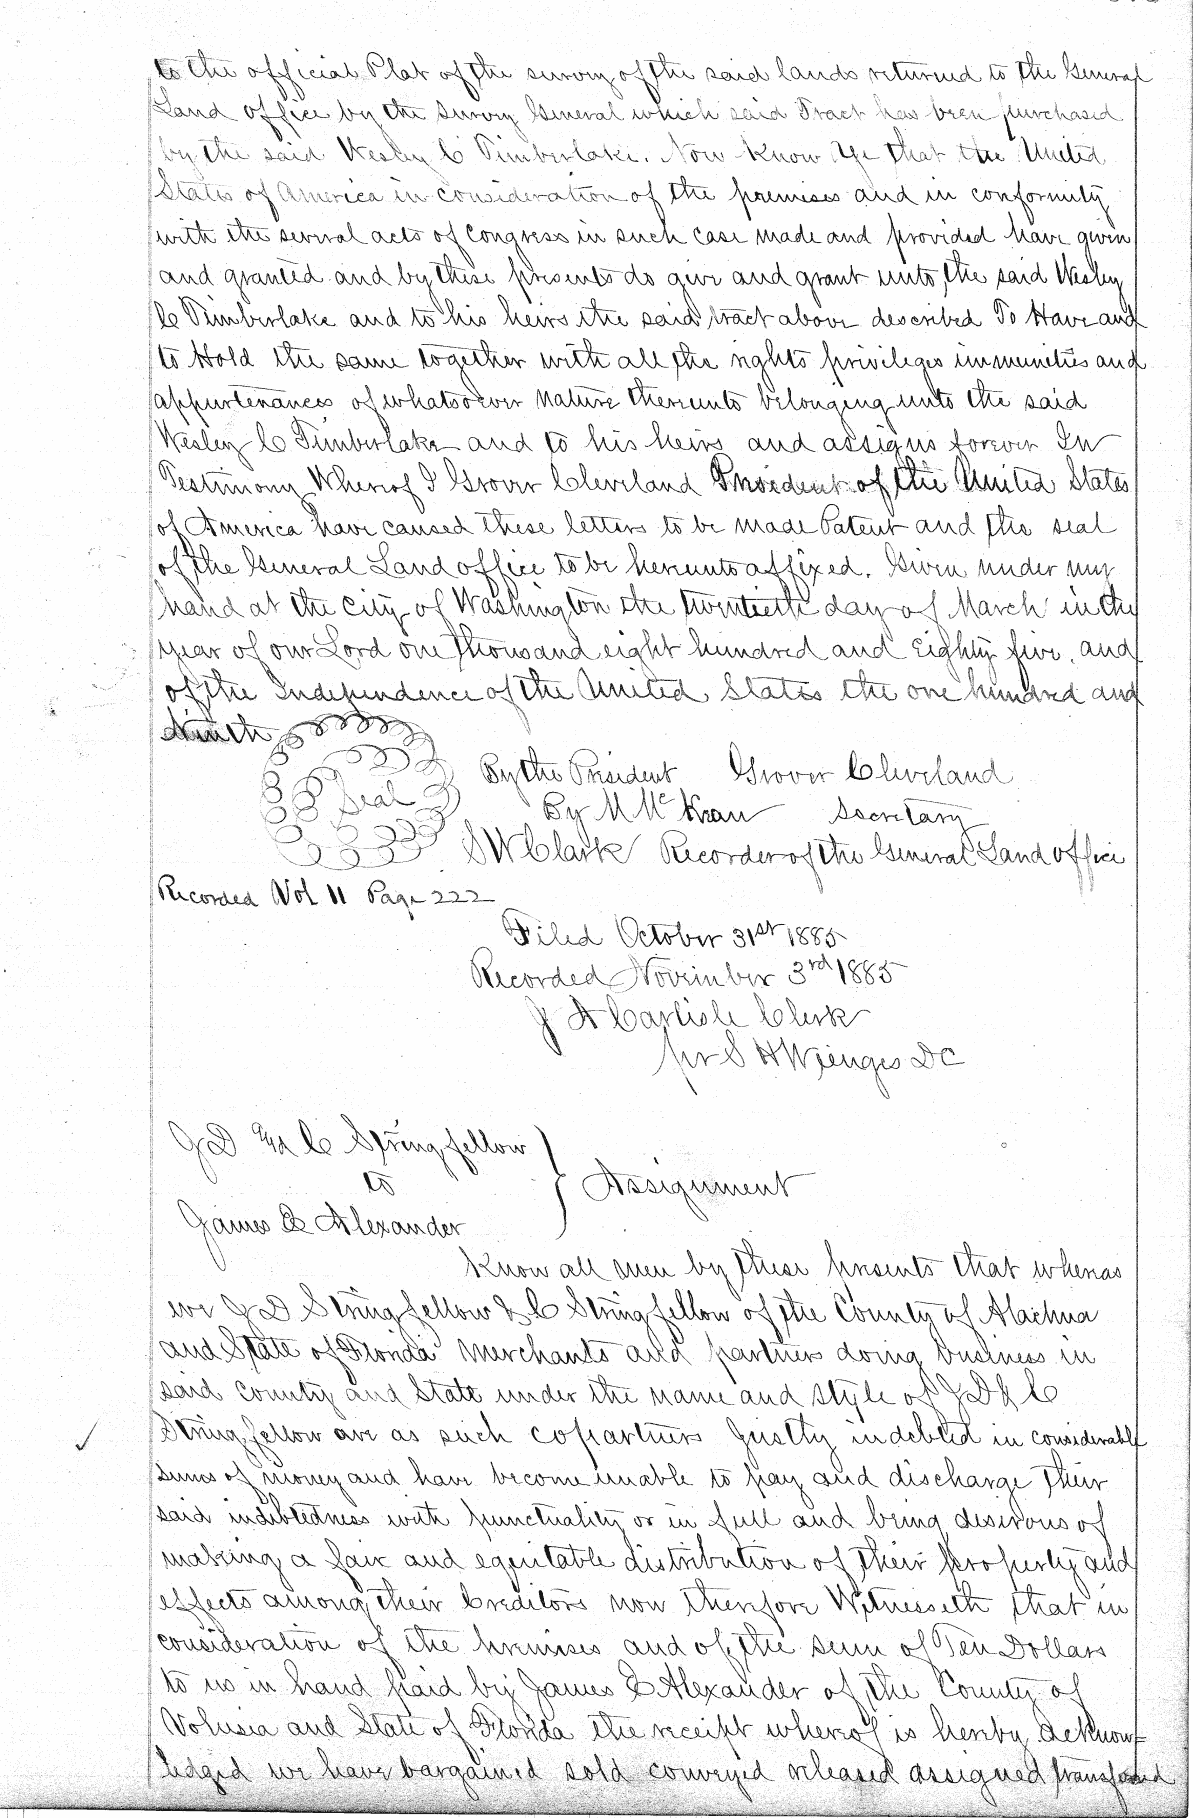 to the official Plat of the survey of the said lands returned to the General
Land office by the Survey General which said Tract has been purchased
by the said Wesley C Timberlake. Now Know Ye that the United
States of America in consideration of the premises and in conformity
with the several acts of Congress in such case made and provided have given
and granted and by these presents do give and grant unto the said Wesley
C Timberlake and to his heirs the said tract above described To Have and
to Hold the same together with all the rights privileges immunities and
appurtenances of whatsoever nature thereunto belonging unto the said
Wesley C Timberlake and to his heirs and assigns forever In
Testimony Whereof I Grover Cleveland President of the United States
of America have caused these letters to be made Patent and the seal
of the General Land office to be hereunto affixed. Given under my
hand at the city of Washington the twentieth day of March in the
year of our Lord one thousand eight hundred and Eighty five. and
of the Independence of the United States the one hundred and
Ninth
Seal
By the President Grover Cleveland
By M McKean Secretary
S W Clark Recorder of the General Land office
Recorded Vol 11 Page 222
Filed October 31st 1885
Recorded November 3rd 1885
J A Carlisle Clerk
pr S H Wienges DC
J D and C Stringfellow
to
Assignment
James E Alexander
Know all men by these presents that whereas
we J D Stringfellow & C Stringfellow of the County of Alachua
and State of Florida Merchants and partners doing business in
said County and State under the name and style of J D & C
Stringfellow are as such copartners justly indebted in considerable
sums of money and have become unable to pay and discharge their
said indebtedness with punctuality or in full and being desirous of
making a fair and equitable distribution of their property and
effects among their Creditors now therefore Witnesseth that in
consideration of the premises and of the sum of Ten Dollars
to us in hand paid by James E Alexander of the County of
Volusia and State of Florida the receipt whereof is hereby acknow=
ledged we have bargained sold conveyed released assigned transferred